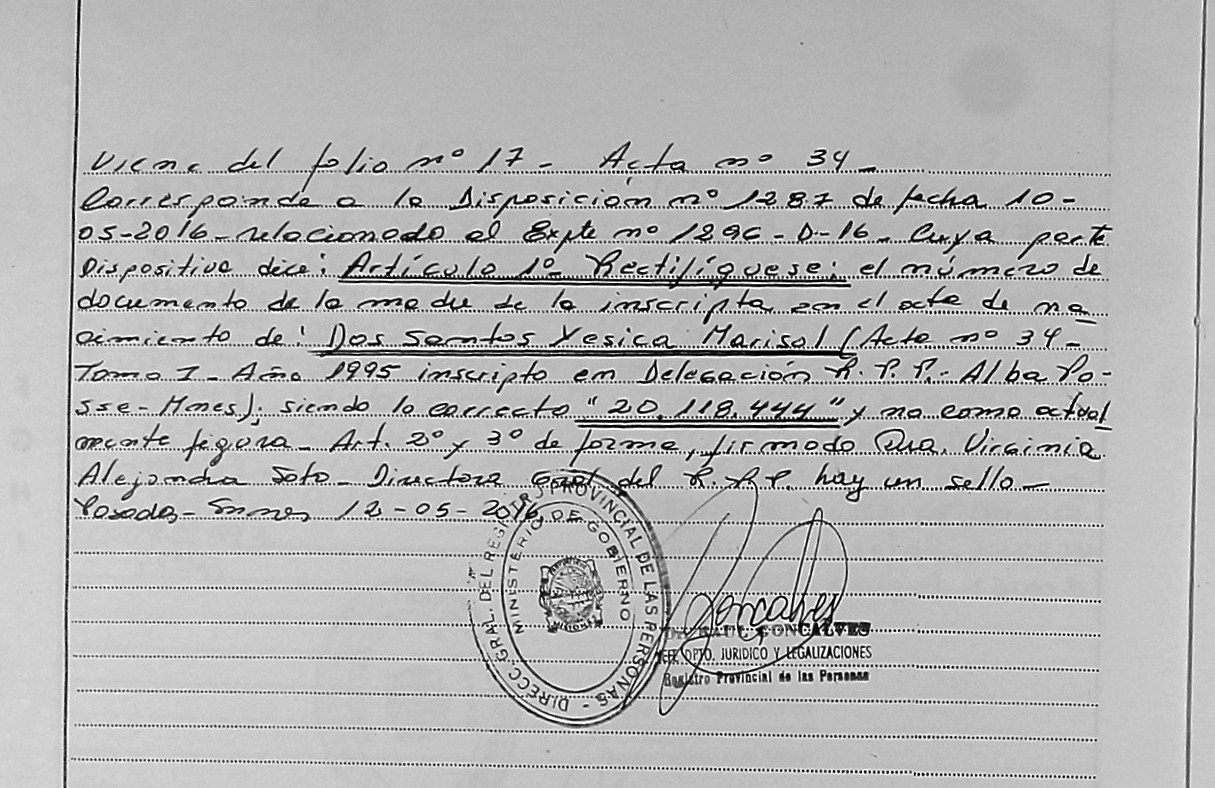 Viene del folio nº 17 - Acta nº 34 -
Corresponde a la Disposición nº 1287 de fecha 10-
05-2016 - relacionado al Expte nº 1296 - D-16 - Cuya parte
Dispositiva dice: Artículo 1º Rectifíquese: el número de
documento de la madre de la inscripta en el acta de na
cimiento de: Dos Santos Yesica Marisol (Acta nº 34 -
Tomo I - Año 1995 inscripto en Delegación R.P.P. - Alba Po-
sse - Mnes); siendo lo correcto "20.118.444" y no como actual
mente figura - Art. 2º y 3º de forma, firmado Dra. Virginia
Alejandra Soto - Directora Gral del R.P.P. hay un sello -
Posadas - 12 - 05 - 2016
DIRECC. GRAL. DEL REGISTRO PROVINCIAL DE LAS PERSONAS -
MINISTERIO DE GOBIERNO
MISIONES
Goncalves
Dr. RAUL GONCALVES
JEFE DPTO. JURIDICO Y LEGALIZACIONES
Registro Provincial de las Personas